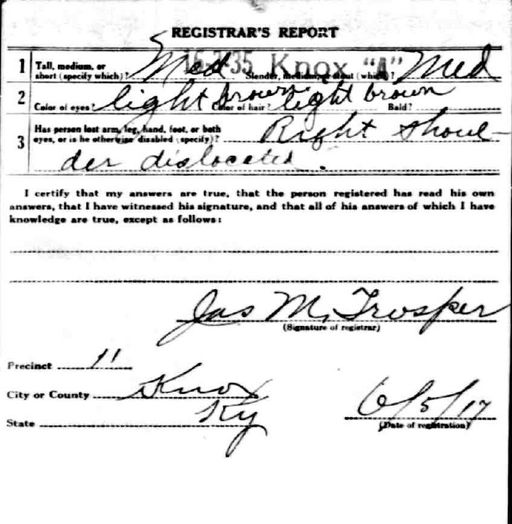 REGISTRAR'S REPORT
16-3-35 Knox "A"
1 Tall, medium, or short (specify which)? Med Slender, medium, or stout (which)? Med
2 Color of eyes? light brown Color of hair? light brown Bald?
3 Has person lost arm, leg, hand, foot, or both
eyes, or is he otherwise disabled (specify)? Right Shoul-
der dislocated.
I certify that my answers are true, that the person registered has read his own
answers, that I have witnessed his signature, and that all of his answers of which I have
knowledge are true, except as follows:
Jas M. Trosper
(Signature of registrar)
Precinct 11
City or County Knox
State Ky 6/5/17
(Date of registration)